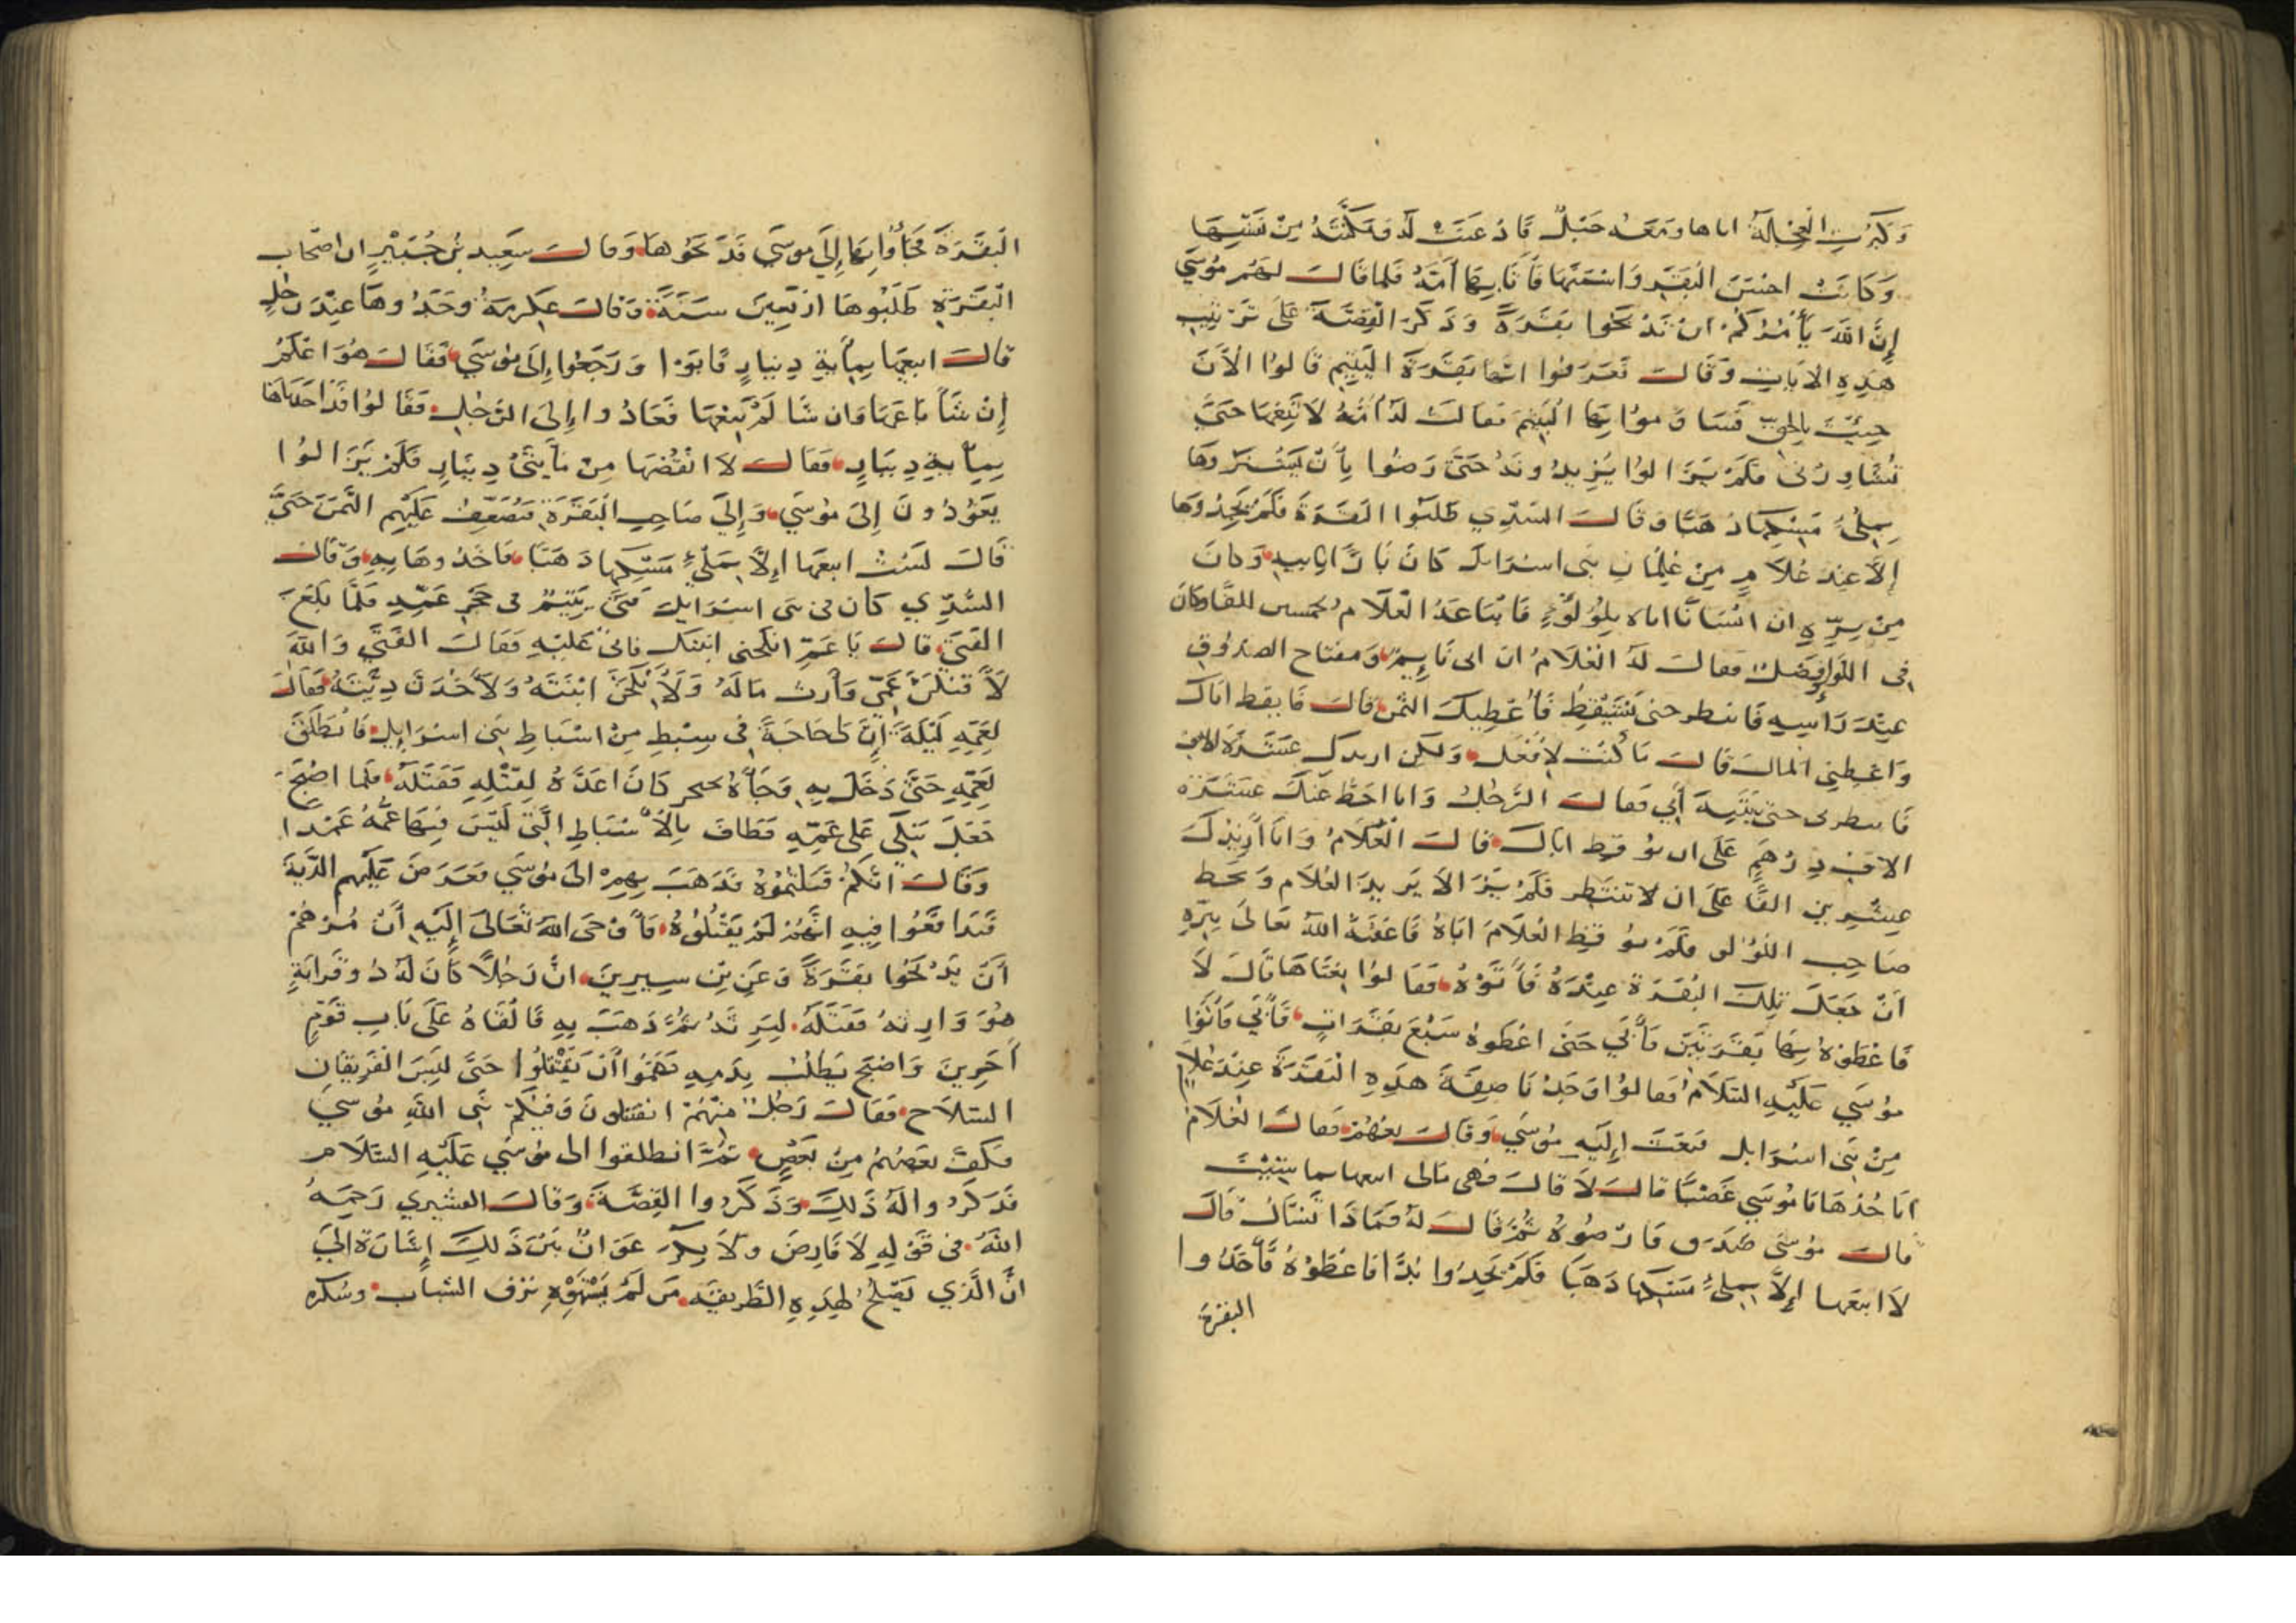 وَكَبُرَتِ الْعِجْلَةُ اتاها ومَعَه حَبْلٌ فَاذعَنَتْ لَهُ فمَكَّنَتْهُ مِنْ نَفْسِهَا
وَكَانَتْ احْسَنَ الْبَقَرِ وَاسْمَنَهَا فَأتَا بِهَا أُمَّهُ فلما قالَ لَهُمْ مُوسَي
إِنَّ اللهَ يَأْمُرُكُمْ انْ تَذْبَحُوا بَقَرَةً وَذَكَرَ الْقِصَّةَ عَلَى تَرْتِيبِ
هَذِهِ الآيَاتِ وَقَالَ فَعَرَفُوا انَّهَا بَقَرَةُ الْيَتِيمِ قَالُوا الْأَنَ
جِيْتَ بِالْحَقِّ فَسَاوَمُوا بِهَا الْيَتِيمَ فقالَتْ لَهُ أمُّهُ لَا تَبِعْهَا حَتَّى
تُشَاوِرُنى فَلَمْ يَزَالُوا يَزِيدُونَهُ حَتَّى رَضُوا بِأَنْ يَشْتَرُوهَا
بِمِلْىءِ مَسْكِهَا ذَهَبًا وَقَالَ السُّدِّي طَلَبُوا الْبَقَرَةَ فَلَمْ يَجِدُوهَا
إِلَّا عِنْدَ غُلَامٍ مِنْ غِلْمَانِ بَنى اسْرَايلَ كَانَ بَارًّا بِابِيهِ وَكانَ
مِنْ بِرِّهِ ان انْسَانًا اتاه بِلُؤْلُؤٍ فَابْتَاعَهُ الْغُلَامُ بخمسين الفًا وكَانَ
فى اللؤلؤ فَضْلٌ فقالَ لَهُ الْغُلَامُ ان ابى نَايِمٌ وَمفتاح الصندُوقِ
عِنْدَ رَأْسِهِ فَانتظر حتى يَسْتَيْقِظَ فَأُعْطِيكَ الثمنَ قالَ فَايقظ ابَاكَ
وَاعْطِنِي المالَ قَالَ مَا كُنْتُ لِأَفْعَلَ وَلَكِن ازيدكَ عشَرَةَ الافٍ
فَانتظرنى حتى يَنْتَبِهَ أَبِي فَقالَ الرَّجُلُ وَانا احُطُّ عَنْكَ عَشَرَة
الافِ دِرْهَمٍ عَلَى ان تُوقِظَ ابَاكَ قالَ الْغُلَامُ وَانَا أَزِيْدُكَ
عِشْرِينَ الفًا عَلَى ان لا تنتَظِر فَلَمْ يَزَالَا يَزِيدُ الغُلَامُ وَيَحُط
صَاحِب اللؤلؤ فَلَمْ يُوقِظِ الْغُلَامُ ابَاهُ فَاعْقَبَهُ اللهُ تَعَالَى بِبِرِّهِ
أَنْ جَعَلَ تِلْكَ الْبَقَرَةَ عِنْدَهُ فَأَتَوْهُ فَقَالُوا بِعْنَاهَا قَالَ لَا
فَاعْطَوْهُ بِهَا بَقَرَتَيْنِ فَأَبَي حَتَى اعْطَوْهُ سَبْعَ بَقَرَاتٍ فَأَبَي فَأَتَوْا
مُوسَي عَلَيْهِ السَّلَامُ فقالوُا وَجَدْنَا صِفَةَ هَذِهِ الْبَقَرَةَ عِنْدَ غُلَامٍ
مِنْ بَنِي اسْرَايل فَبَعَثَ إِلَيْهِ مُوسَي وَقَالَ بِعْهُمْ فَقالَ الْغُلَامُ
اتَاخُذهَا يَا مُوسَي غَصْبًا قالَ لَا قالَ فَهى مَالى ابيعها بما شِيْتُ
قالَ مُوسَى صَدَقَ فَارْضُوهُ ثُمَّ قَالَ لَهُ فَمَاذَا تَسْألُ قَالَ
لَا ابيعَها إِلَّا بِمِلْىءِ مَسْكِهَا ذَهَبًا فَلَمْ يَجِدُوا بُدًّا فَاعْطَوْهُ فَأَخَذُوا
البقرة
الْبَقَرَةَ فَجَأُوا بِهَا إِلَى مُوسَي فَذَبَحُوهَا وَقالَ سَعِيد بْن جُبَيْرٍ ان اصْحاب
الْبَقَرَةِ طَلَبُوهَا ارْبَعِينَ سَنَةً وَقالَ عِكرمَةُ وَجَدُوهَا عِنْدَ رَجُلٍ
قَالَ ابيعُهَا بِمِأَيةِ دِينَارٍ فَابَوْا وَرَجَعُوا إِلَى مُوسَي فَقَالَ هُوَ اعْلَمُ
إِنْ شَأَ بَاعَهَا وَان شَا لَمْ يَبِعْهَا فَعَادُوا إِلَى الرَّجُلِ فَقَالُوا قَدْ اخَذْنَاهَا
بِمِأيةِ دِينَارٍ فَقَالَ لَا انْقُصُهَا مِنْ مَأَيتَيْ دِينَارٍ فَلَمْ يَزَالُوا
يَعُوْدُونَ إِلَى مُوسَي وَإِلَى صَاحِبِ الْبَقَرَةِ فَيُضَعِّفُ عَلَيْهِم الثَّمَنَ حَتَّى
قَالَ لَسْتُ ابيعُهَا إِلَّا بِمَلْيءِ مَسْكِهَا ذَهَبًا فَاخَذُوهَا بِهِ وَقَالَ
السُّدِّي كَان فى بنى اسْرَايلَ فَتًى يَتِيْمٌ فى حجْرِ عَمِّهِ فَلَمَّا بَلَغَ
الْفَتَى قالَ يَا عَمّ انكحنى ابنتك فابى عَلَيْهِ فَقَالَ الفَتَى وَاللهِ
لَأَقْتُلَنَّ عَمِّي وَلَأَرِثَ مَالَهُ وَلَأَنْكِحَنَّ ابْنَتَهُ وَلَأَخُذَنَّ دِيَّتَهُ فَقَالَ
لِعَمِّهِ لَيْلَةً إِنَّ لِي حَاجَةً فى سِبْطٍ مِنْ اسْبَاطِ بَنى اسْرَايِلَ فَانْطَلَقَ
بِعَمِّهِ حَتَّى دَخَلَ بِهِ وَجَأَهُ بحجر كَانَ اعَدَّهُ لِقَتْلِهِ فَقَتَلَهُ فَلما اصْبَحَ
جَعَلَ يَبْكِي عَلى عَمِّهِ فَطَافَ بِالْأَسْبَاطِ الَّتِي لَيْسَ فِيهَا عَمُّهُ عَمْدا
وَقَالَ انَّكُمْ قَتَلْتُمُوْهُ فَذَهَبَ بِهِمْ الى مُوسَي فَعَرَضَ عَلَيْهِم الدِّيَةَ
فَتَدَافَعُوا فِيهِ انَّهُمْ لَمْ يَقْتُلُوْهُ فَأَوْحَى اللهُ تَعَالَى إِلَيْهِ أَنْ مُرْهُمْ
أَنْ يَذْبَحُوا بَقَرَةً وَعَنِ بْنِ سِيرِينَ انَّ رَجُلًا كَانَ لَهُ ذُو قَرَابَةٍ
هُوَ وَارِثهُ فَقَتَلَهُ لِيَرِثَهُ ثُمَّ ذَهَبَ بِهِ فَالْقَاهُ عَلَى بَابِ قَوْمٍ
آخَرِينَ وَاصْبَحَ يَطْلُبُ بِدَمِهِ فَهَمُّوا أَنْ يَقْتَتِلُوا حَتَّى لَبِسَ الْفَرِيقَانِ
السلَاح فَقَالَ رَجُلٌ مِنْهُمْ اتقتتلونَ وَفِيْكُمْ نَبى اللهِ مُوسَي
فَكَفَّ بَعْضُهُمْ مِنْ بَعْضٍ ثُمَّ انطلقوا الى مُوسَي عَلَيْهِ السَّلَام
فَذَكَرُوا لَهُ ذَلِكَ وَذَكَرُوا الْقِصَّةَ وَقَالَ القشيري رَحِمَهُ
اللهُ فى قَوْلِهِ لَا فَارِضٌ وَلَا بِكْرٌ عَوَانٌ بَيْنَ ذَلِكَ إِشَارَة إلَى
انَّ الَّذِي يَصْلُحُ لِهَذِهِ الطَّرِيقَةِ مَن لَمْ يَسْتَهْوِهِ نزف الشباب وسُكره